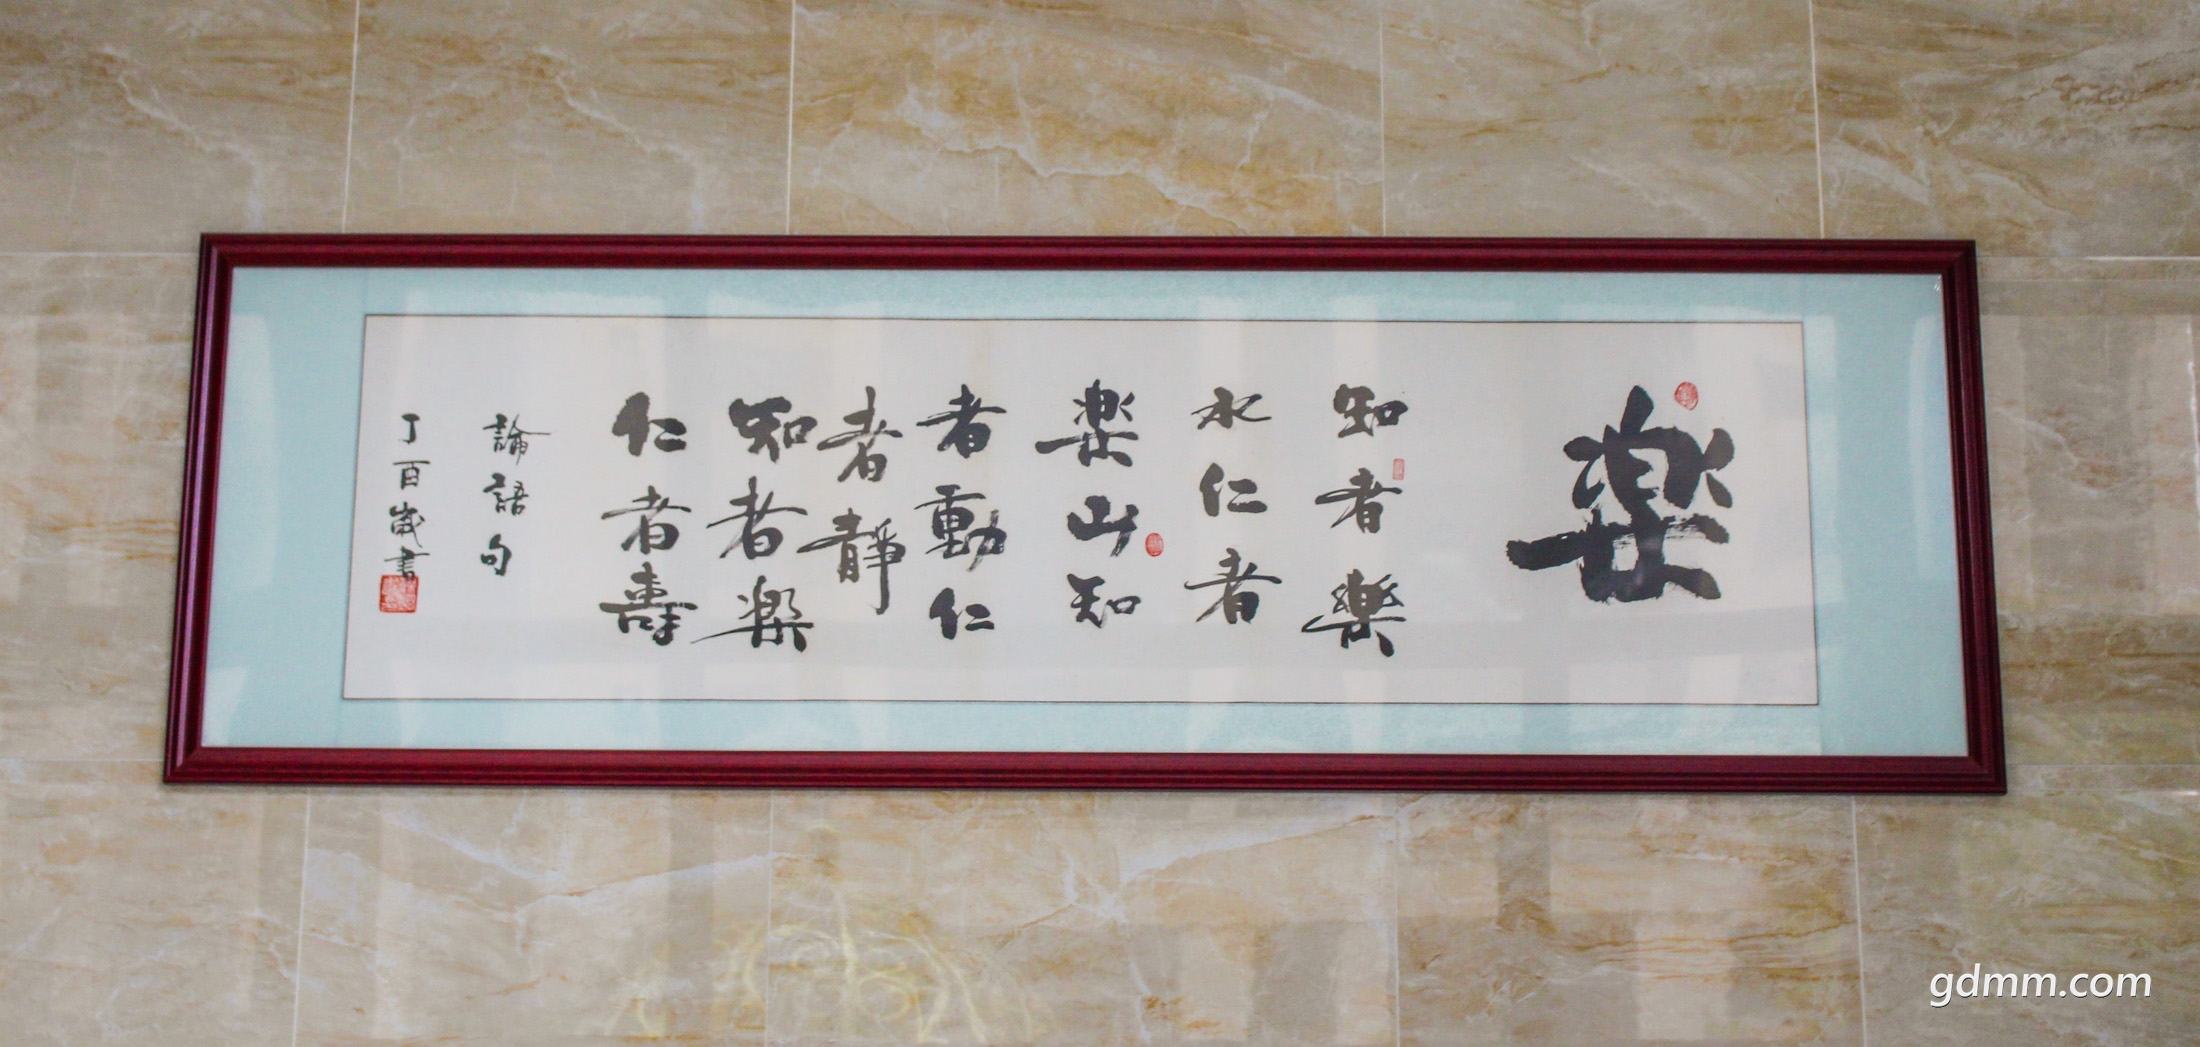 樂
知者樂
水仁者
楽山知
者動仁
者靜
知者樂
仁者壽
論語句
丁百歲書
gdmm.com